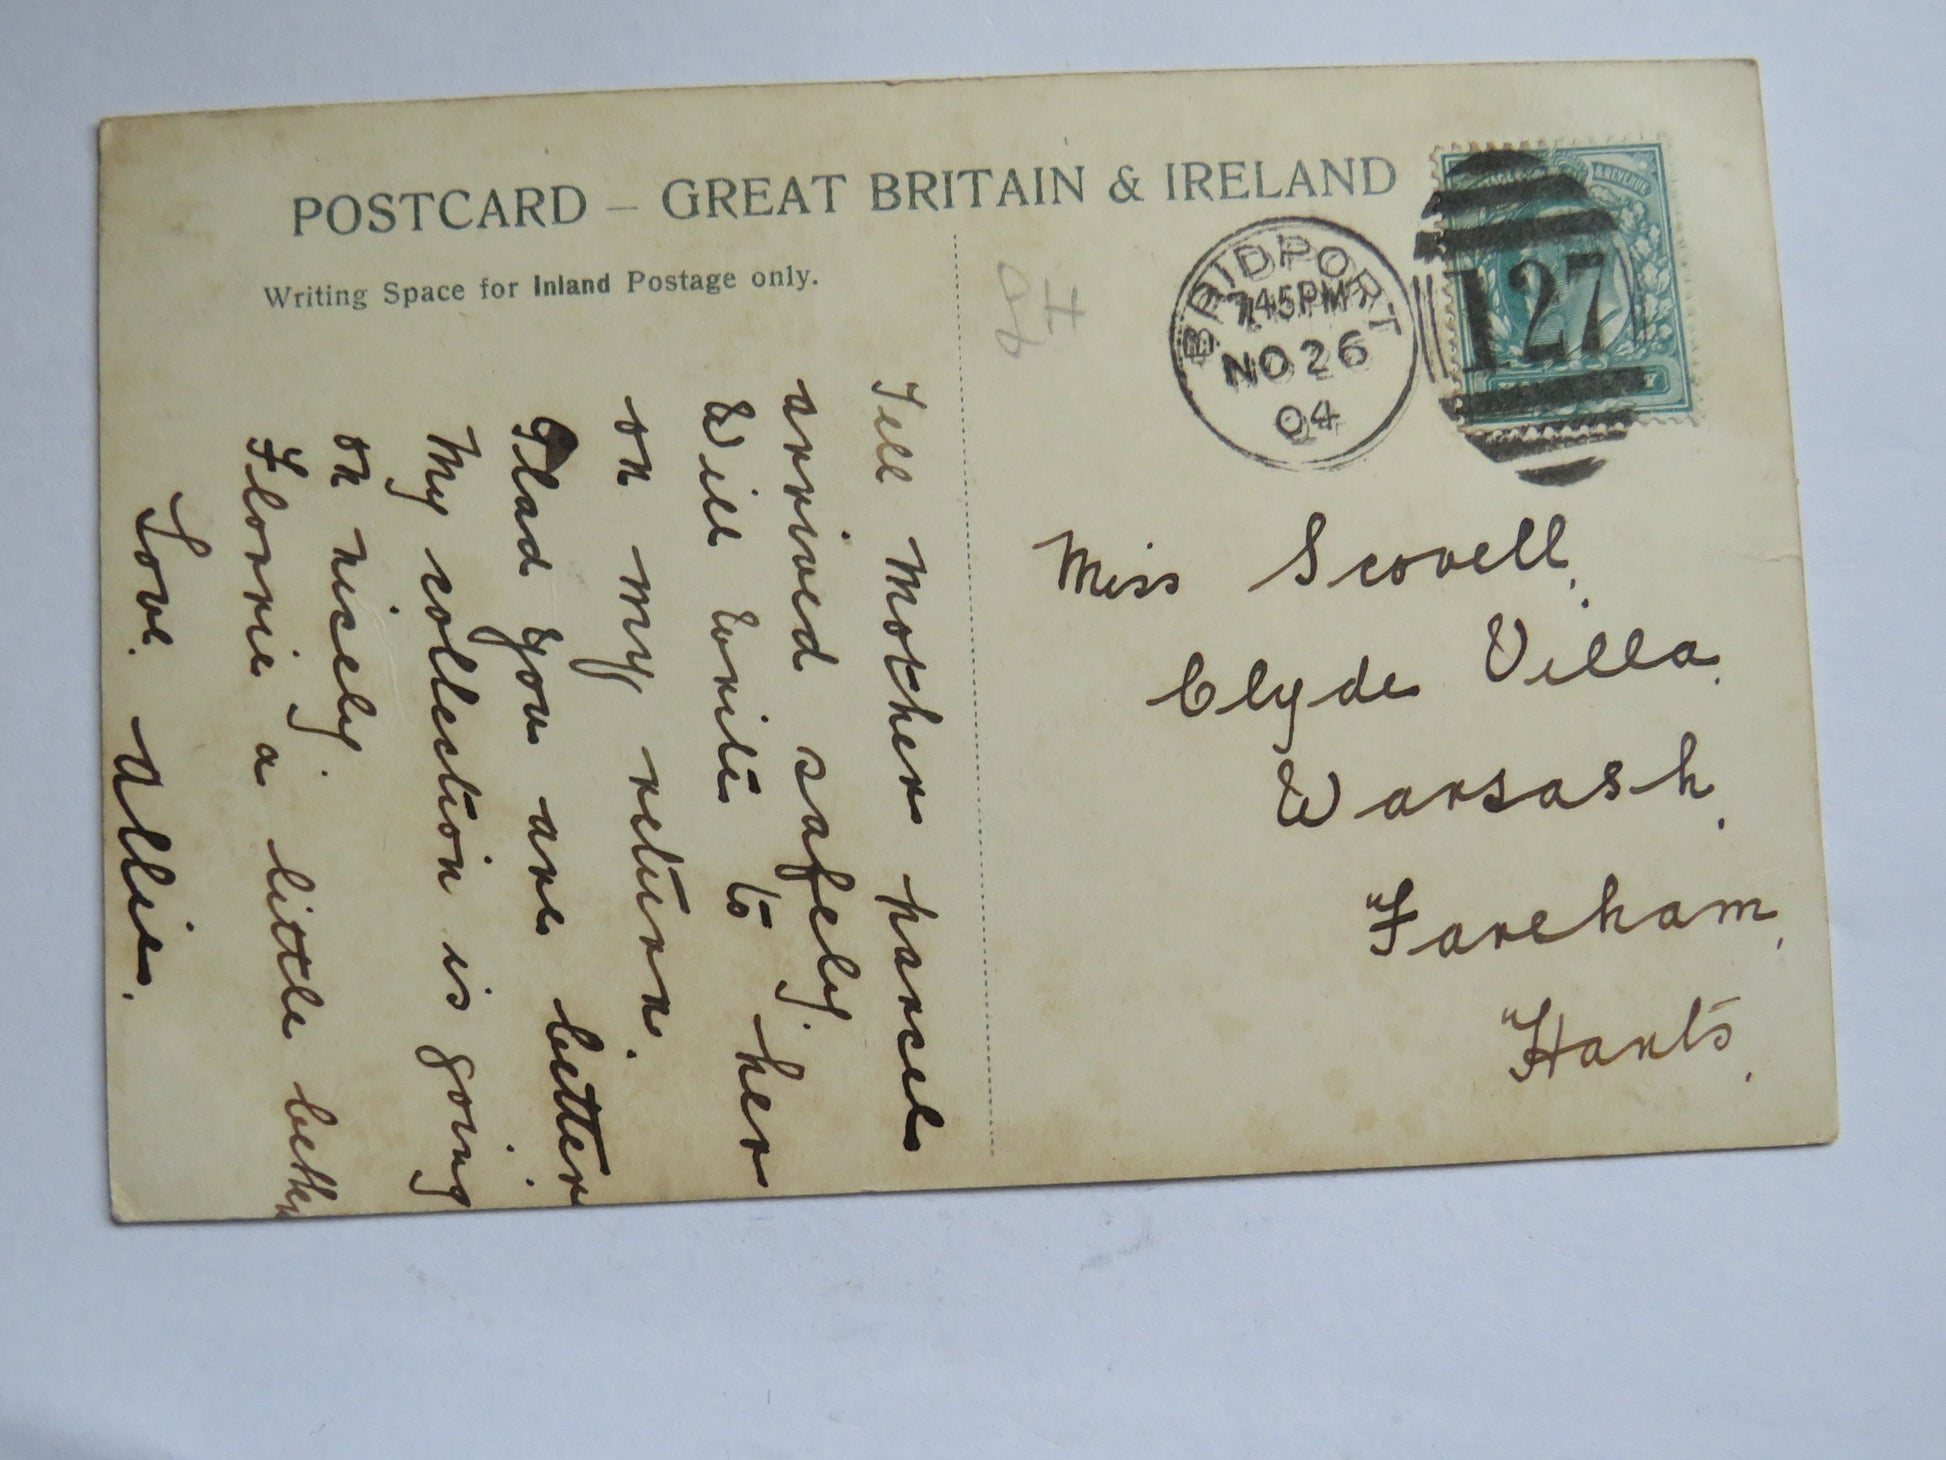 POSTCARD – GREAT BRITAIN & IRELAND
Writing Space for Inland Postage only.
BRIDPORT
7.45PM
NO 26
04
127
& REVENUE
Tell Mother parcel
arrived safely.
Will write to her
on my return.
Glad you are better.
My collection is going
on nicely.
Florrie a little better
Love. Allie.
Miss Scovell,
Clyde Villa,
Warsash,
Fareham,
Hants,